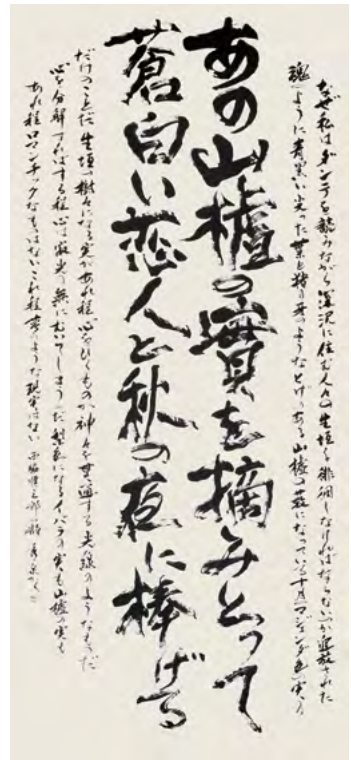 なぜ私はダンテを読みながら深沢に住む人々の生垣を徘徊しなければならないか追放された
魂のように青黒い尖った葉と猪の牙のようなとげのある山樝の藪になっている十月のマジェンタ色の実の
あの山樝の實を摘みとって
蒼白い恋人と秋の夜に捧げる
だけのことだ 生垣の樹々になる実があれ程心をひくものか神々を貫通する光線のようなものだ
心を分解すればする程心は寂光の無にむいてしまうのだ梨色になるイバラの実も山樝の実も
あれ程ロマンチックなものはないこれ程夢のような現実はない 西脇順三郎の詩